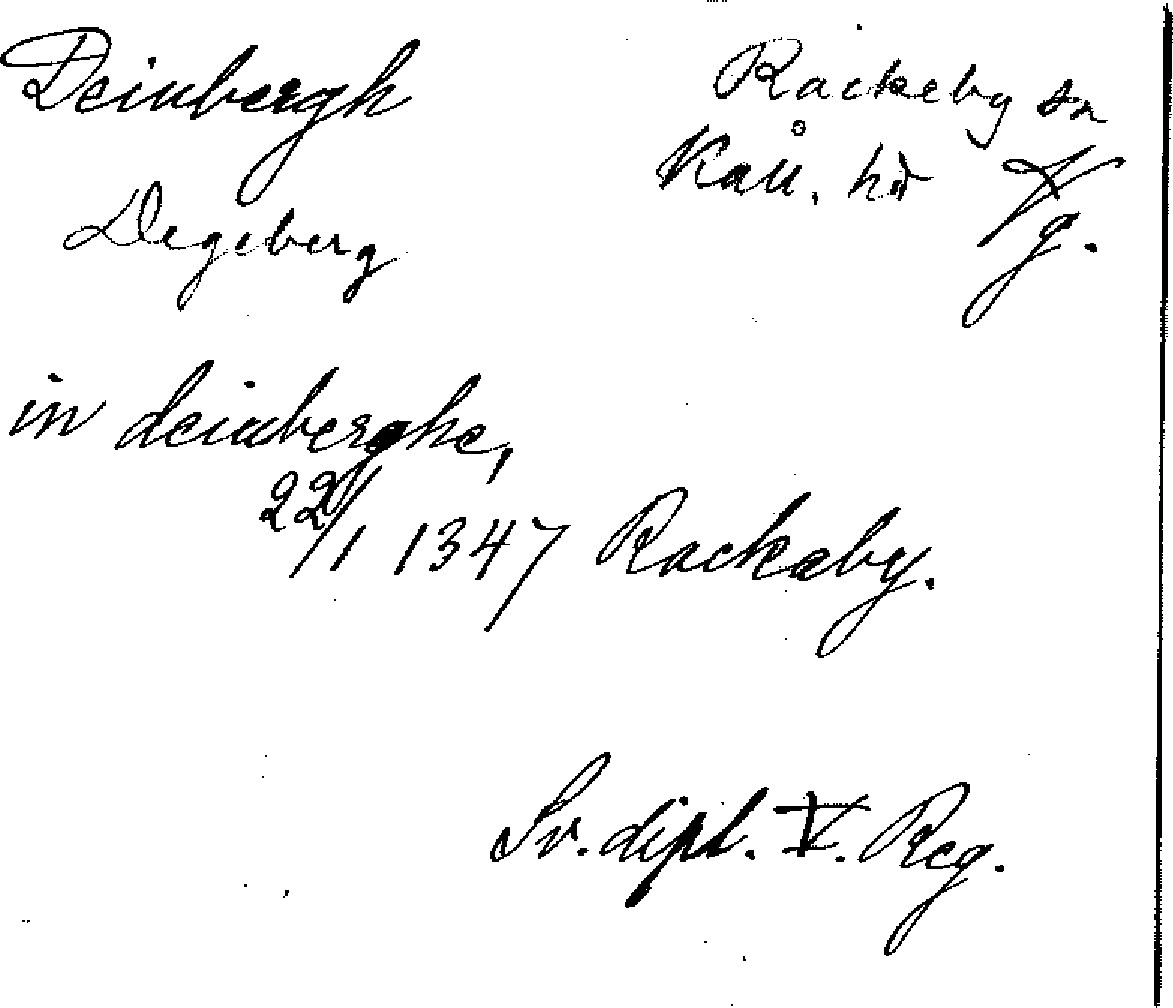 Deinbergh
Rackeby sn
Degeberg
Kåll. hd Vg.
in deinberghe,
22/1 1347 Rackaby.
Sv. dipl. V. Reg.